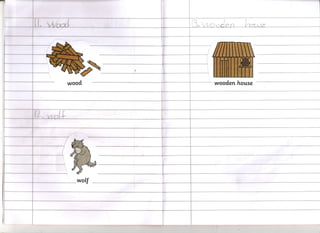 11. Wood
wood
12. wolf
wolf
13. wooden house
wooden house